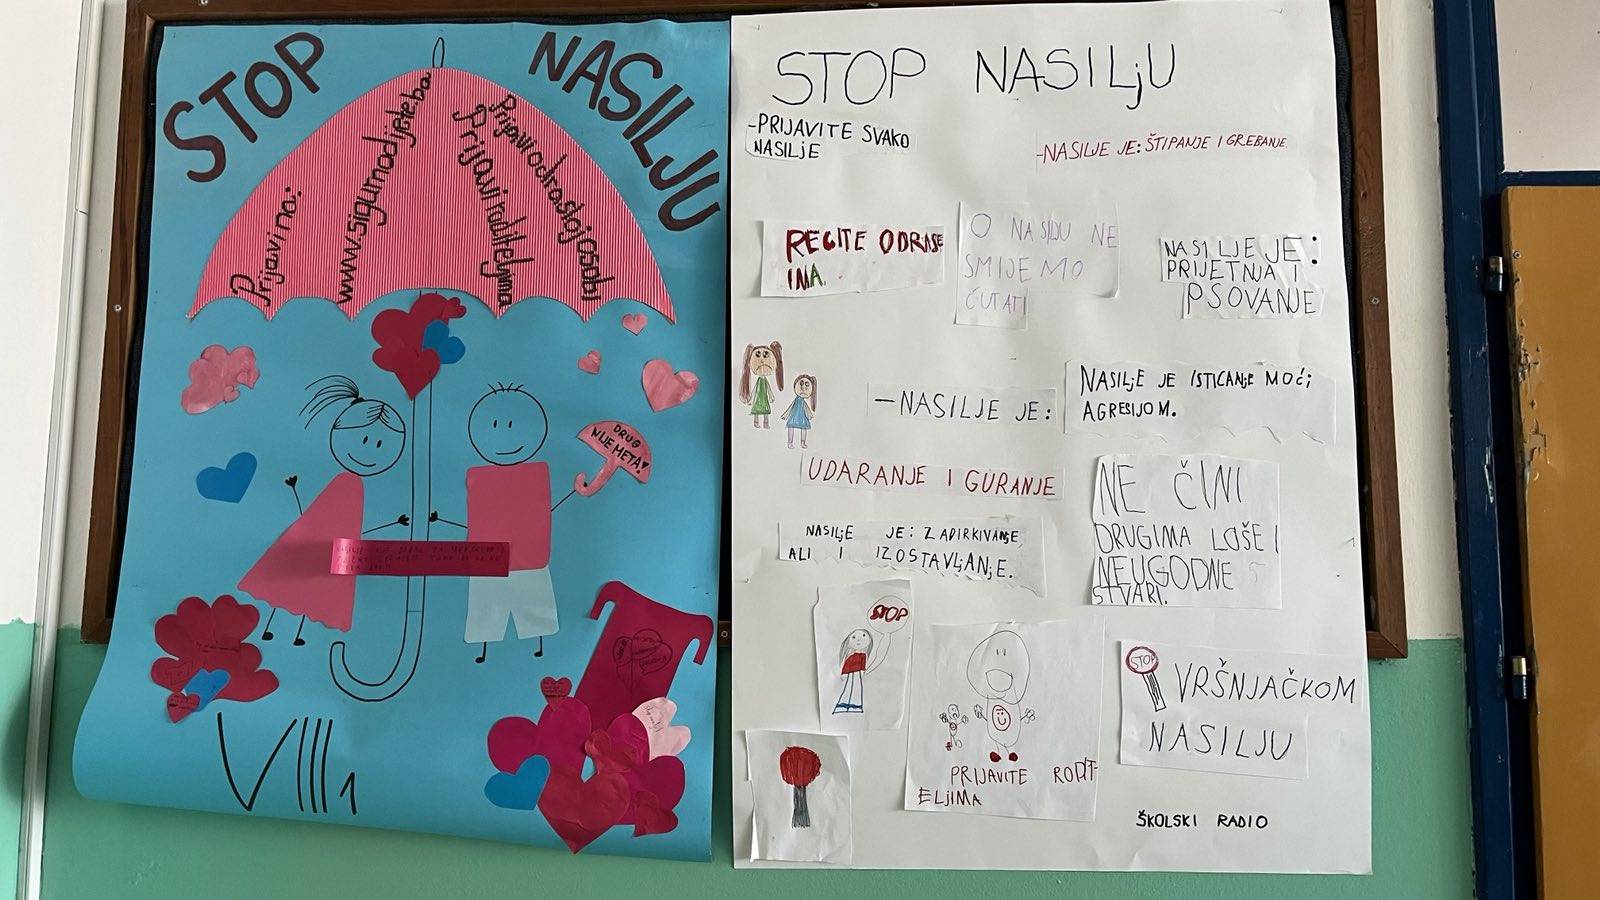 STOP NASILJU
Prijavi na:
www.sigurnodijete.ba
Prijavi roditeljima
Prijavi odrasloj osobi
DRUG
NIJE META!
VIII1
STOP NASILjU
-PRIJAVITE SVAKO
NASILJE
-NASILJE JE: ŠTIPANJE I GREBANJE.
RECITE ODRASL
IMA.
O NASILJU NE
SMIJEMO
ĆUTATI
NASILJE JE:
PRIJETNJA I
PSOVANJE
-NASILJE JE:
NASILjE JE ISTICANjE MOĆi
AGRESIJOM.
UDARANJE I GURANJE
NASILjE JE: ZADIRKIVANjE
ALI I IZOSTAVLjANjE.
NE ČINI
DRUGIMA LOŠE I
NEUGODNE
STVARI.
STOP
PRIJAVITE RODIT-
ELjIMA
STOP VRŠNJAČKOM
NASILJU
ŠKOLSKI RADIO